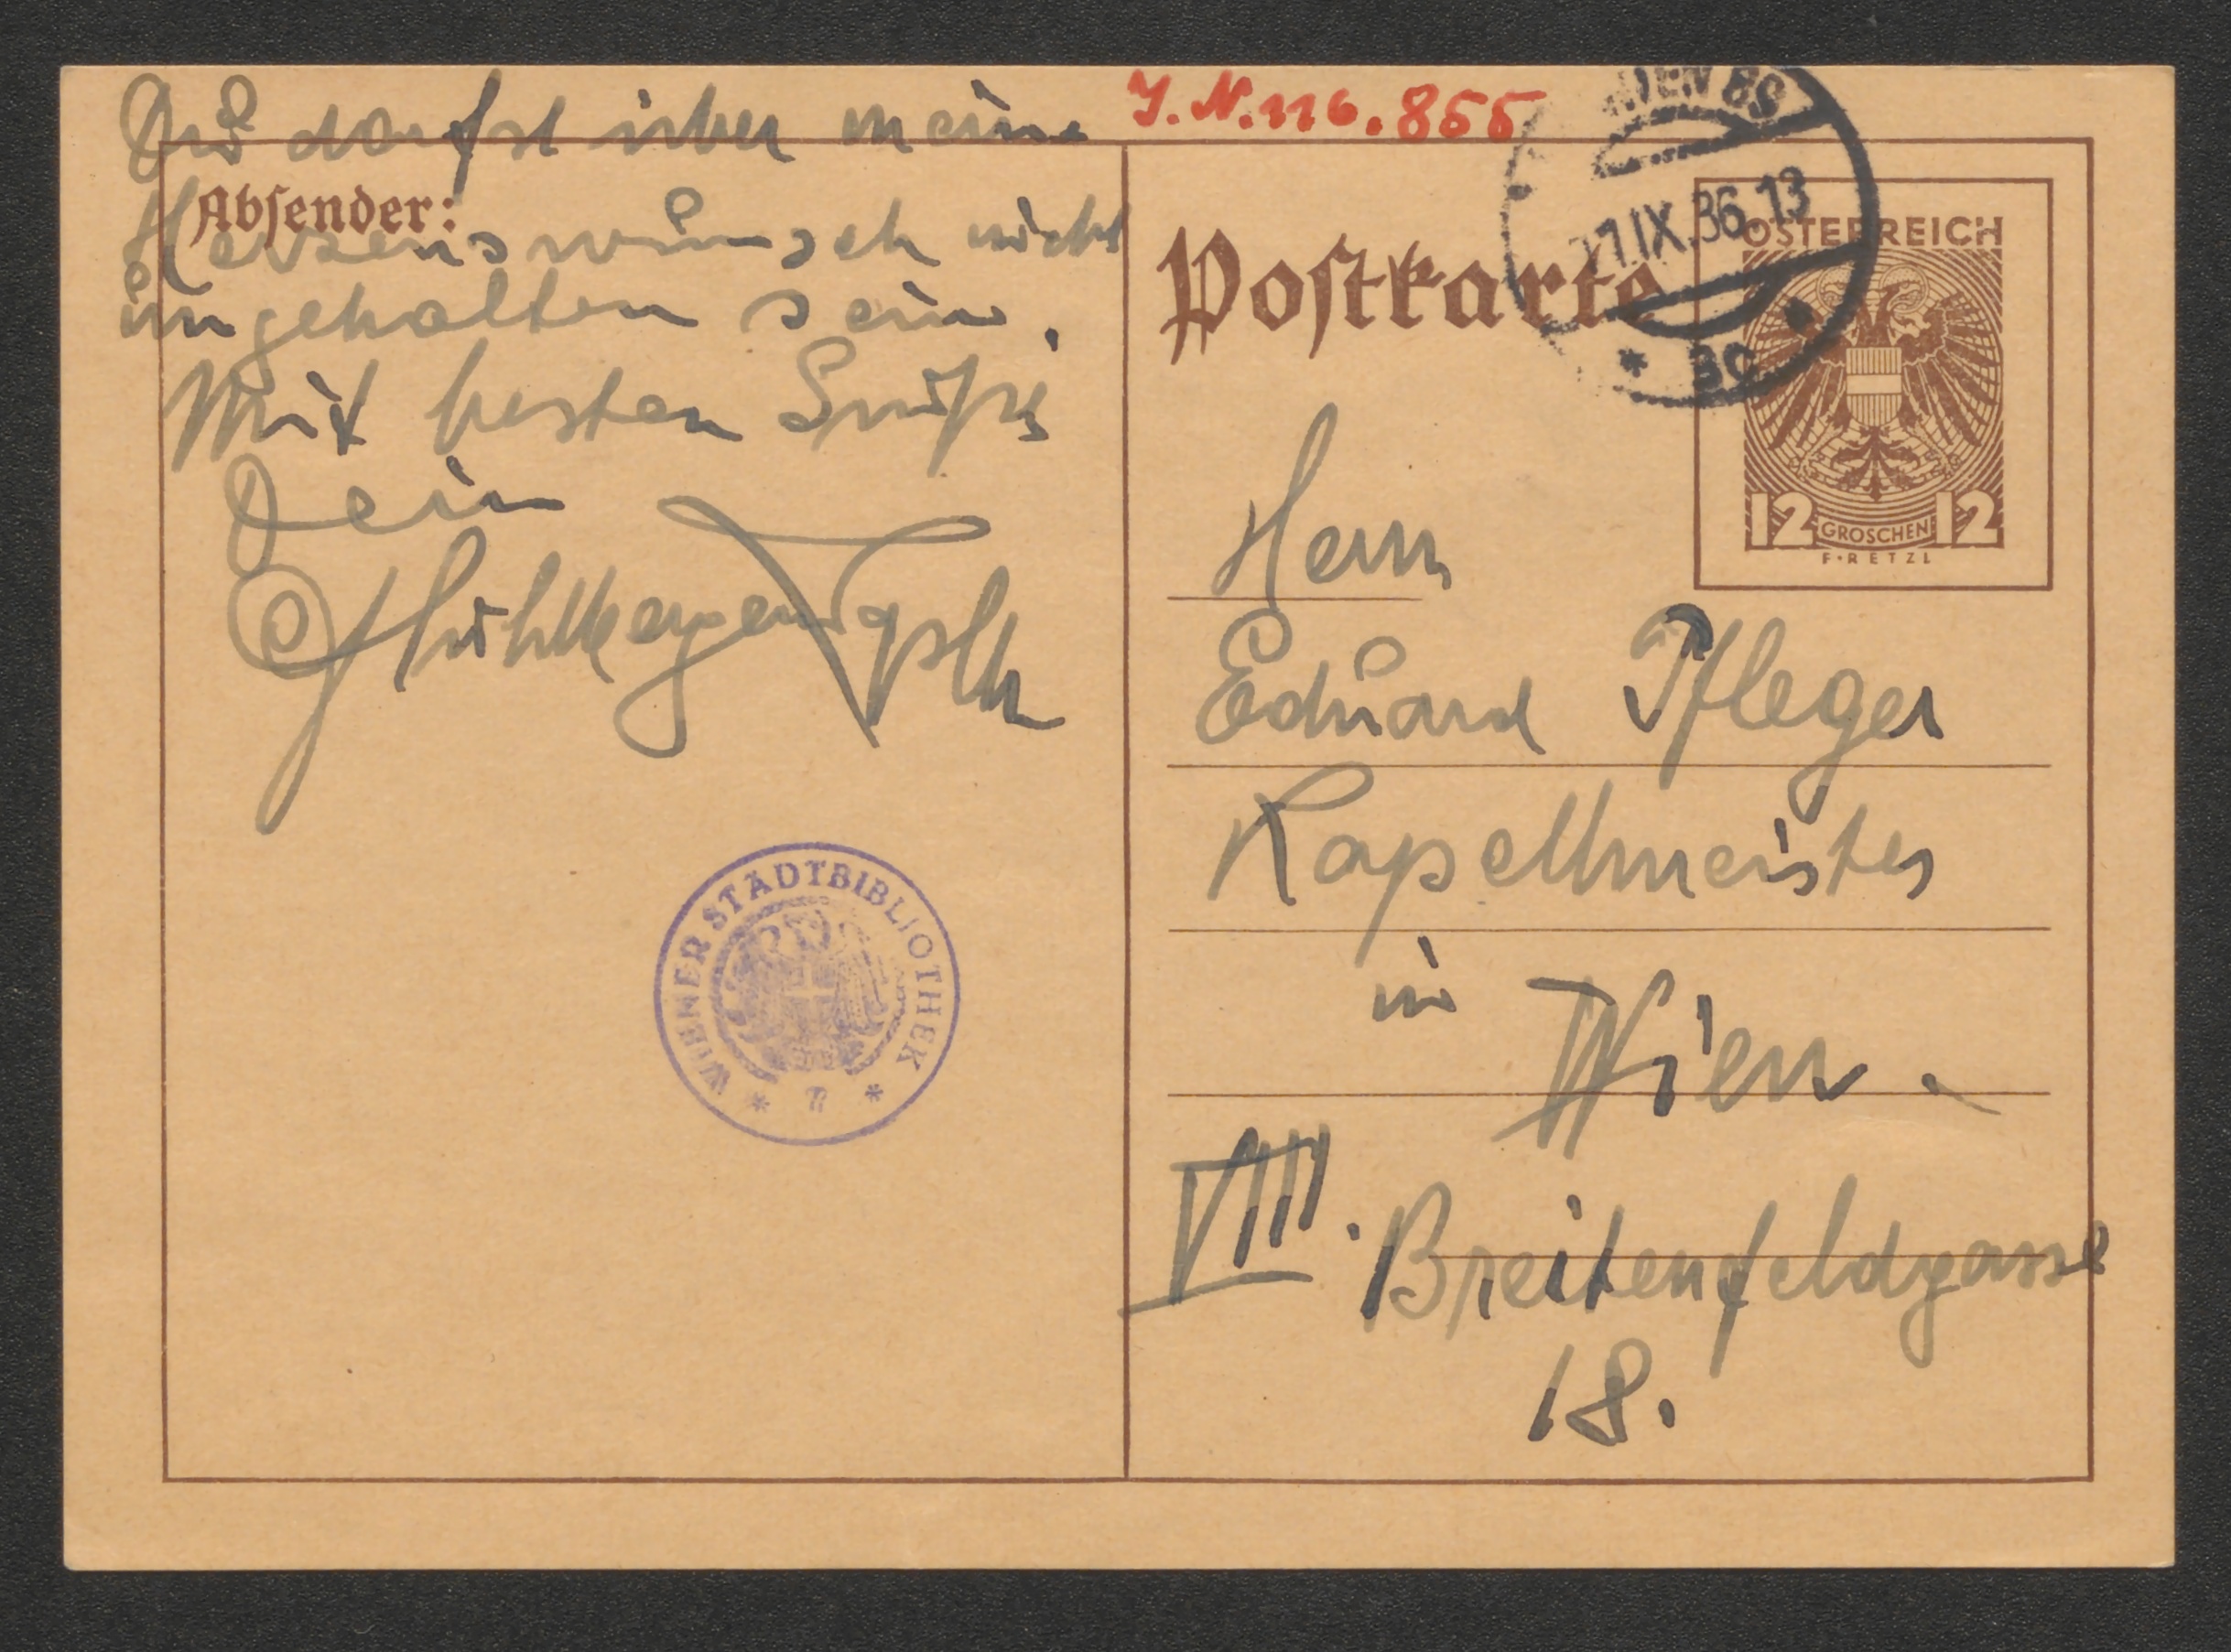 Du darfst über meine
Herzenswunsch nicht
ungehalten sein.
Mit besten Grüßen
Dein
Absender:
J.N. 116.855
Postkarte
WIEN BS
IX.36 13
* 3c
ÖSTERREICH
12 GROSCHEN 12
F·RETZL
Herrn
Eduard Pfleger
Kapellmeister
in Wien.
VIII. Breitenfeldgasse
18.
WIENER STADTBIBLIOTHEK